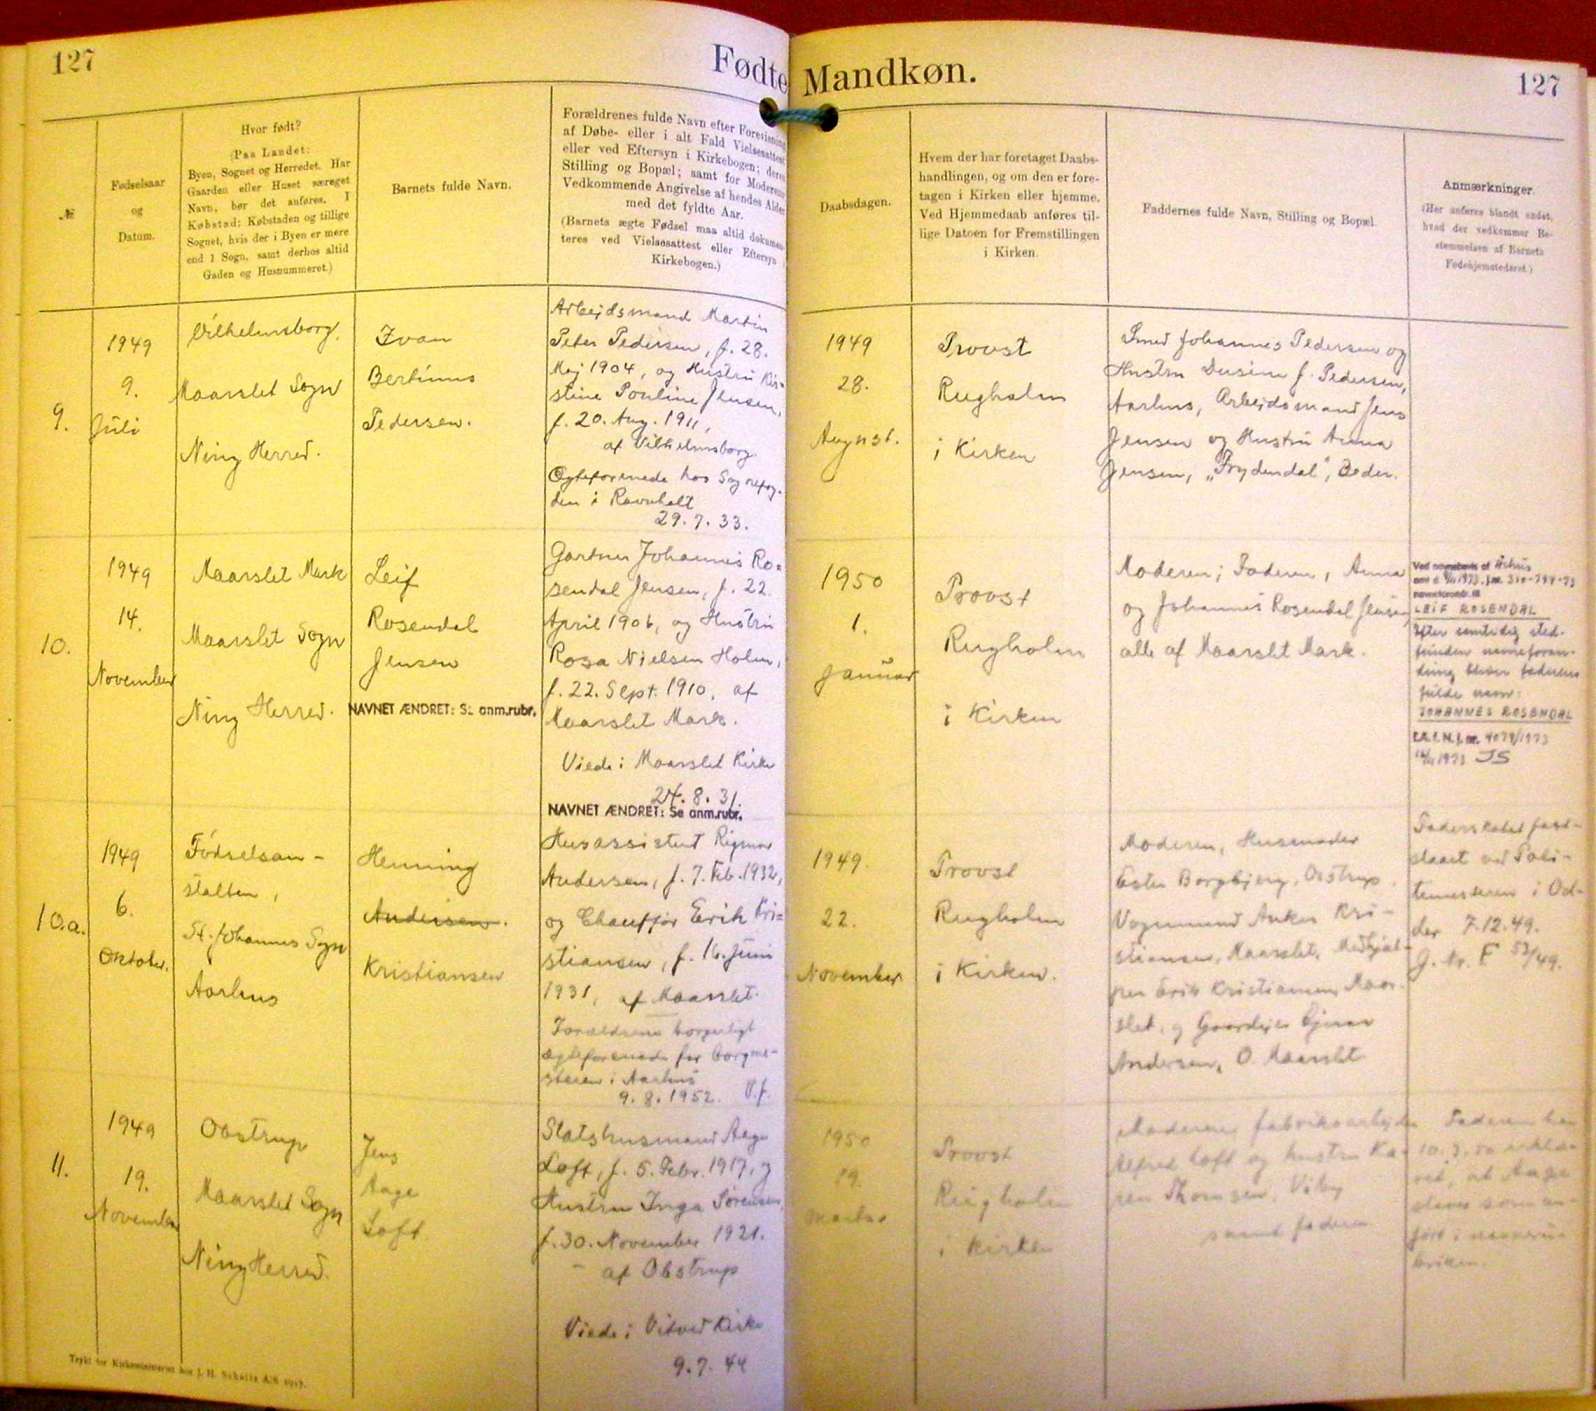 127
Fødte
Mandkøn.
127
№
Fødselsaar
og
Datum.
Hvor født?
(Paa Landet:
Byen, Sognet og Herredet. Har
Gaarden eller Huset særeget
Navn, bør det anføres. I
Købstad: Købstaden og tillige
Sognet, hvis der i Byen er mere
end 1 Sogn, samt derhos altid
Gaden og Husnummeret.)
Barnets fulde Navn.
Forældrenes fulde Navn efter Forevisning
af Døbe- eller i alt Fald Vielsesattest
eller ved Eftersyn i Kirkebogen; deres
Stilling og Bopæl; samt for Moderens
Vedkommende Angivelse af hendes Alder
med det fyldte Aar.
(Barnets ægte Fødsel maa altid dokumen-
teres ved Vielsesattest eller Eftersyn i
Kirkebogen.)
Daabsdagen.
Hvem der har foretaget Daabs-
handlingen, og om den er fore-
tagen i Kirken eller hjemme.
Ved Hjemmedaab anføres til-
lige Datoen for Fremstillingen
i Kirken.
Faddernes fulde Navn, Stilling og Bopæl.
Anmærkninger.
(Her anføres blandt andet,
hvad der vedkommer Be-
stemmelsen af Barnets
Fødehjemstedsret.)
9.
1949
9.
Juli
Vilhelmsborg.
Maarslet Sogn
Ning Herred.
Ivan
Bertinus
Pedersen.
Arbejdsmand Martin
Peter Pedersen, f. 28.
Maj 1904, og Hustru Kir-
stine Pouline Jensen,
f. 20. Aug. 1911,
af Vilhelmsborg.
Ægteforenede hos Sognefog-
den i Ravnholt
29.7.33.
1949
28.
August.
Provst
Rugholm
i Kirken
Smed Johannes Pedersen og
Hustru Dusine f. Pedersen,
Aarhus, Arbejdsmand Jens
Jensen og Hustru Anna
Jensen, „Frydendal", Beder.
10.
1949
14.
November
Maarslet Mark
Maarslet Sogn
Ning Herred.
Leif
Rosendal
Jensen
NAVNET ÆNDRET: Se anm.rubr.
Gartner Johannes Ro-
sendal Jensen, f. 22.
April 1906, og Hustru
Rosa Nielsen Holm,
f. 22. Sept. 1910, af
Maarslet Mark.
Viede i Maarslet Kirke
24.8.31.
NAVNET ÆNDRET: Se anm.rubr.
1950
1.
Januar
Provst
Rugholm
i Kirken
Moderen; Faderen, Anna
og Johannes Rosendal Jensen,
alle af Maarslet Mark.
Ved navnebevis af Århus
LEIF ROSENDAL
Efter samtidig sted-
funden navneforan-
dring bliver faderens
fulde navn:
JOHANNES ROSENDAL
1973 JS
10.a.
1949
6.
Oktober.
Fødselsan-
stalten,
St. Johannes Sogn
Aarhus
Henning
Andersen.
Kristiansen
Husassistent Rigmor
Andersen, f. 7. Feb. 1932,
og Chauffør Erik Kri-
stiansen, f. 16. Juni
1931, af Maarslet.
Forældrene borgerligt
ægteforenede for borgme-
steren i Aarhus
9.8.1952. V.f.
1949.
22.
November
Provst
Rugholm
i Kirken.
Moderen, Husmoder
Ester Borgbjerg, Obstrup.
Vognmand Anker Kri-
stiansen, Maarslet, Medhjæl-
per Erik Kristiansen, Maar-
slet, og Gaardejer Ejnar
Andersen, O. Maarslet
Faderskabet fast-
slaaet ved Poli-
timesteren i Od-
der 7.12.49.
J. Nr. F 52/49.
11.
1949
19.
November
Obstrup
Maarslet Sogn
Ning Herred.
Jens
Aage
Loft
Statshusmand Aage
Loft, f. 5. Febr. 1917, og
Hustru Inga Sørensen,
f. 30. November 1921.
af Obstrup
Viede i Vitved Kirke
9.7.44
1950
19.
Marts
Provst
Rugholm
i Kirken
Moderen, fabriksarbejder
Alfred Loft og hustru Ka-
ren Thomsen, Viby
samt faderen
Faderen har
10.3.50 erklæ-
ret, at Aage
staves som an-
ført i navneru-
briken.
Trykt for Kirkeministeriet hos J. H. Schultz A/S 1947.